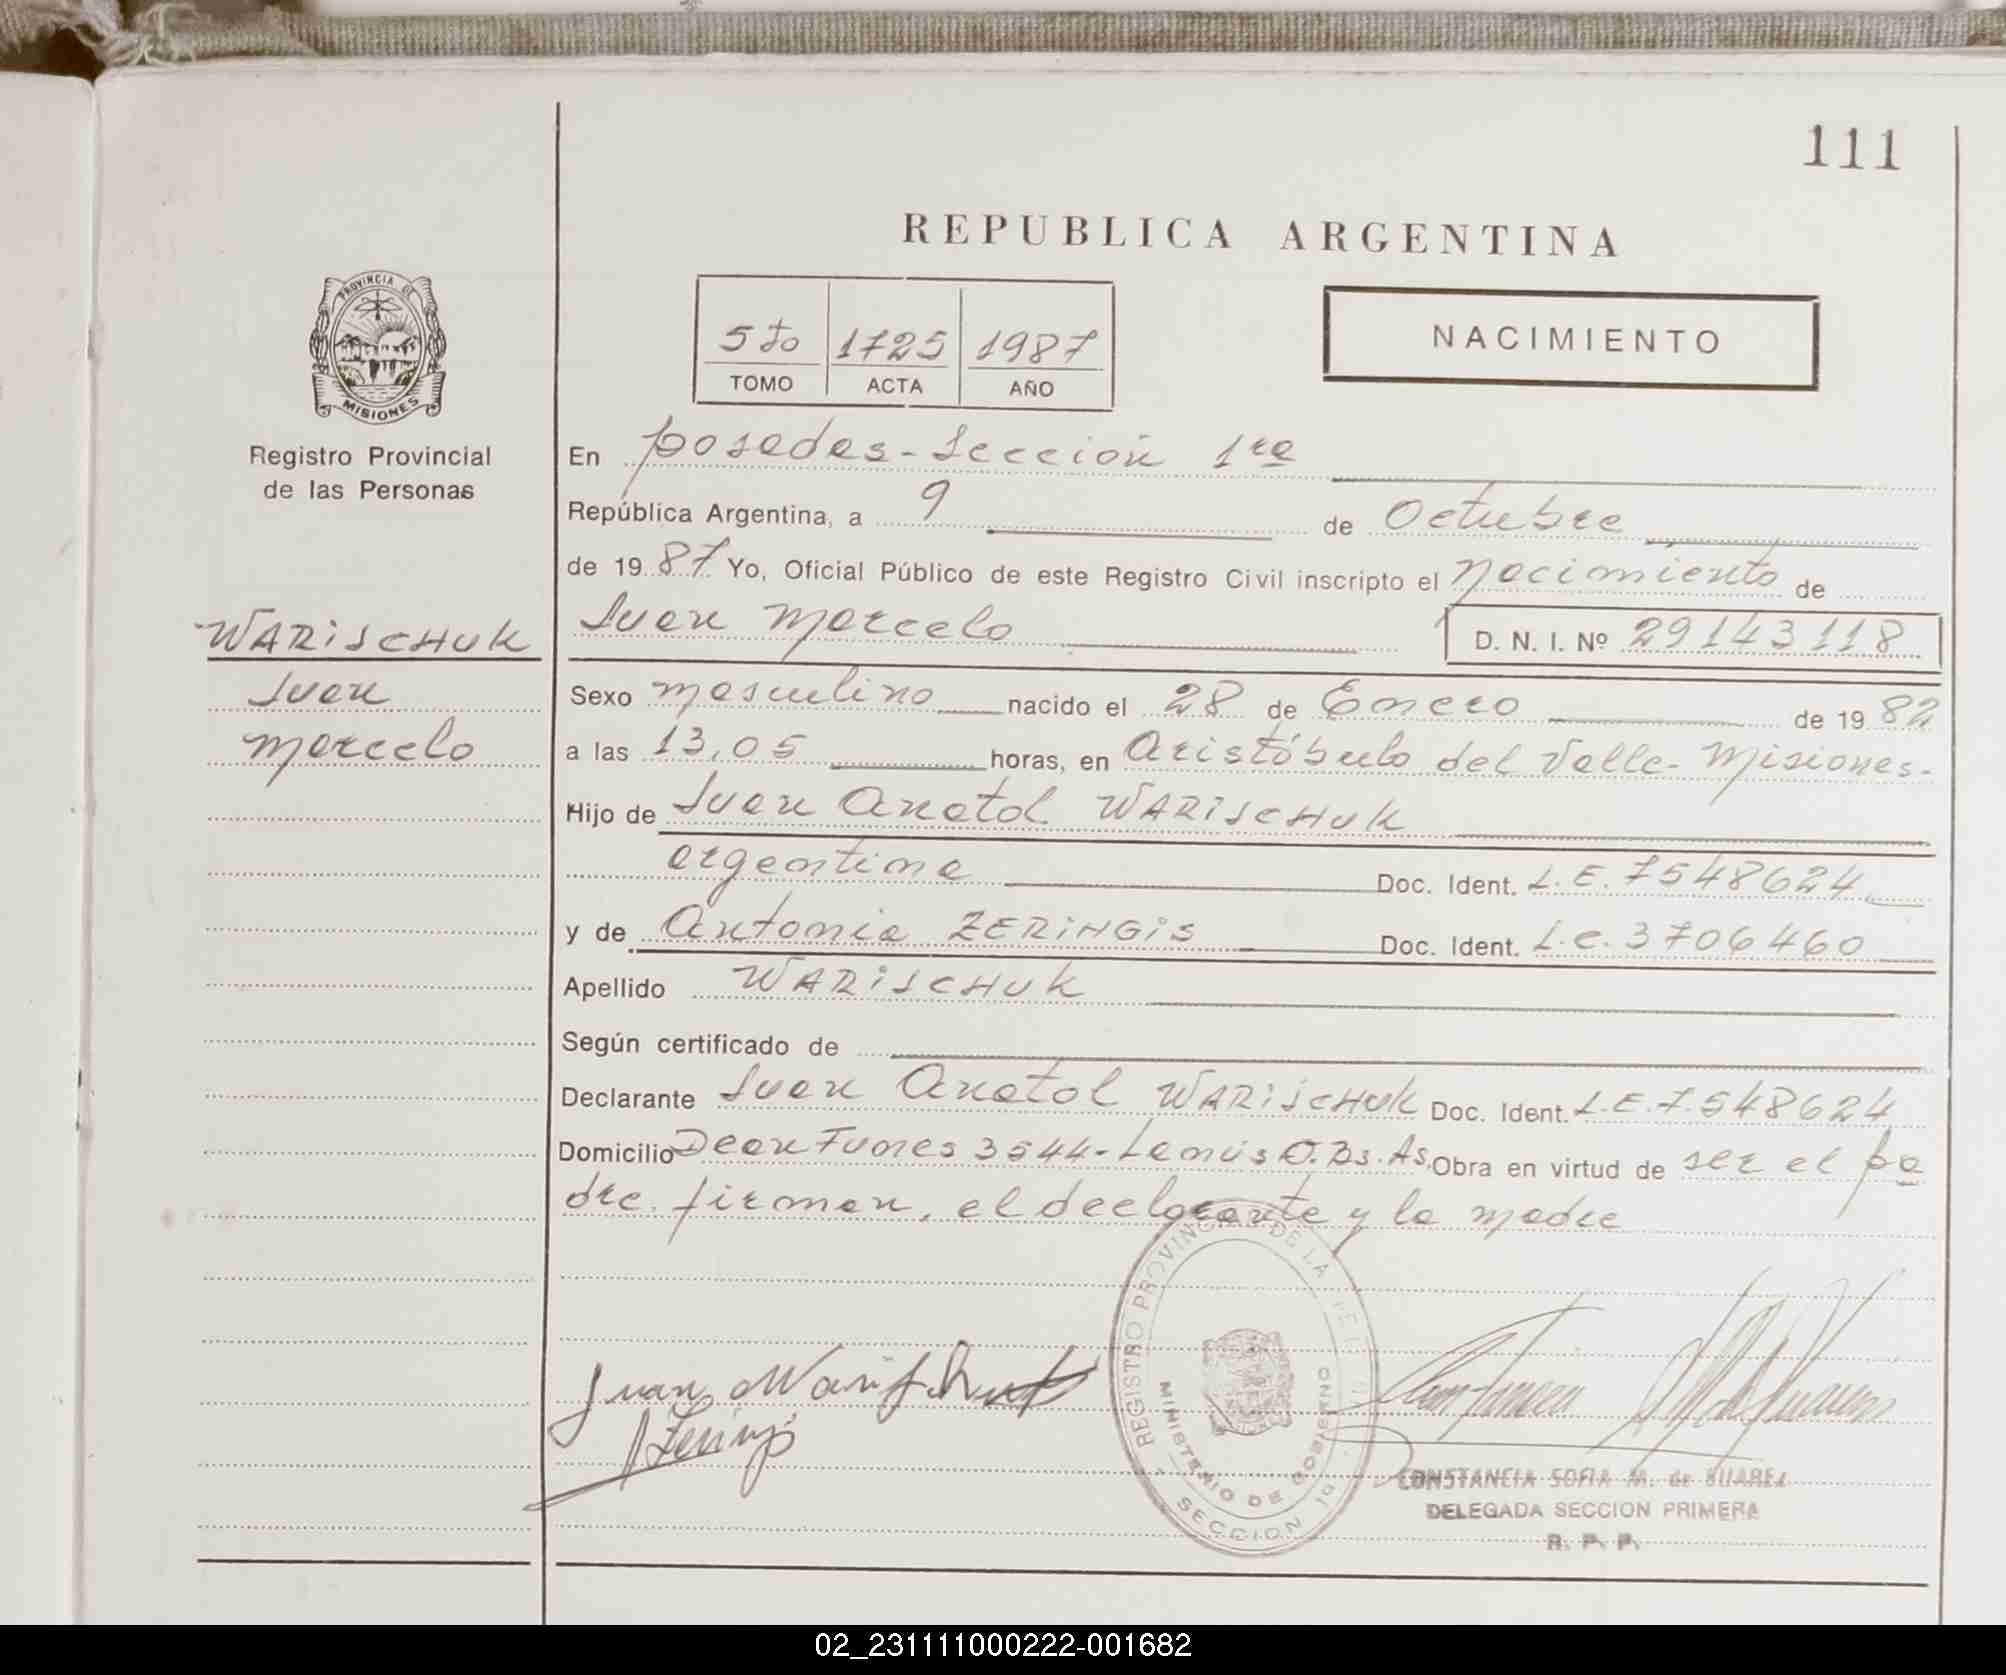 111
REPUBLICA ARGENTINA
5to 1725 1987
TOMO ACTA AÑO
NACIMIENTO
PROVINCIA DE
MISIONES
Registro Provincial
de las Personas
WARISCHUK
Juan
Marcelo
En Posadas - Sección 1ra
República Argentina, a 9 de Octubre
de 1987 Yo, Oficial Público de este Registro Civil inscripto el Nacimiento de
Juan Marcelo D. N. I. Nº 29143118
Sexo masculino nacido el 28 de Enero de 1982
a las 13,05 horas, en Aristóbulo del Valle - Misiones -
Hijo de Juan Anatol WARISCHUK
argentina Doc. Ident. L.E. 7548624
y de Antonia ZERINGIS Doc. Ident. L.C. 3706460
Apellido WARISCHUK
Según certificado de
Declarante Juan Anatol WARISCHUK Doc. Ident. L.E. 7.548624
Domicilio Dean Funes 3544 - Lanús O. Bs. As. Obra en virtud de ser el pa
dre. firman, el declarante y la madre
REGISTRO PROVINCIAL DE LA
MINISTERIO DE GOBIERNO
SECCION 1a
Juan Warischuk
CONSTANCIA SOFIA M. de SUAREZ
DELEGADA SECCION PRIMERA
R. P. P.
02_231111000222-001682